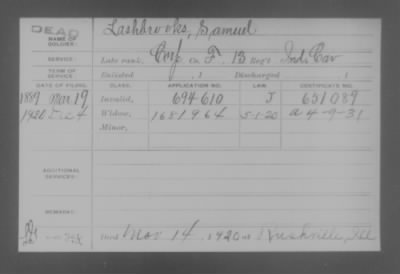 DEAD
NAME OF SOLDIER: Lashbrooks, Samuel
SERVICE: Late rank, Corp Co. F, 13 Reg't Ind. Cav
TERM OF SERVICE: Enlisted , 1 Discharged , 1
DATE OF FILING. CLASS. APPLICATION NO. LAW. CERTIFICATE NO.
1889 Mar 19 Invalid, 694-610 J 651089
1920 Dec 4 Widow, 1681964 5-1-20 a 4-9-31
Minor,
ADDITIONAL SERVICES:
REMARKS:
Died Nov 14, 1920 at Rushville, Ill